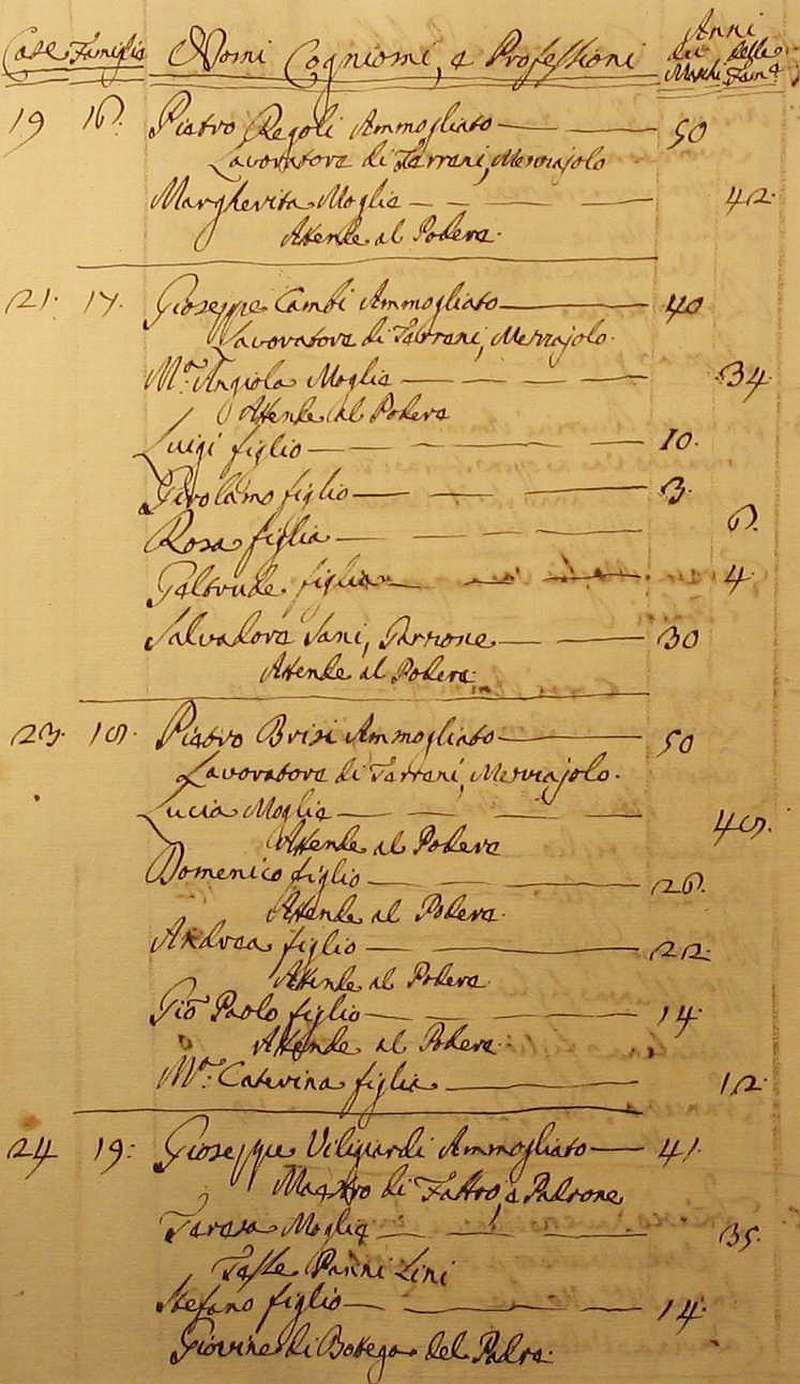 Case Famiglie Nomi Cogniomi, e Professioni Anni dei Maschi delle Fem.e
19 16. Pietro Regoli Ammogliato 50
Lavoratore di Terreni, Mezzajolo
Margherita Moglie 42.
Attende al Podere.
21. 17. Gioseppe Cambi Ammogliato 40
Lavoratore di Terreni, Mezzajolo.
M.a Angiola Moglie 34.
Attende al Podere
Luigi figlio 10.
Girolamo figlio 3.
Rosa figlia 6.
Geltrude figlia 4
Salvadore Sani, Garzone 30
Attende al Podere.
23. 18. Pietro Brisi Ammogliato 50
Lavoratore di Terreni, Mezzajolo.
Lucia Moglie 48.
Attende al Podere
Domenico figlio 26.
Attende al Podere.
Andrea figlio 22.
Attende al Podere
Gio Paolo figlio 14.
Attende al Podere.
M.a Caterina figlia 12.
24 19. Gioseppe Ammogliato 41.
Maestro di e Padrone
Teresa Moglie 35.
Tesse Panni Lini
Stefano figlio 14.
Giovine di Bottega del Padre.